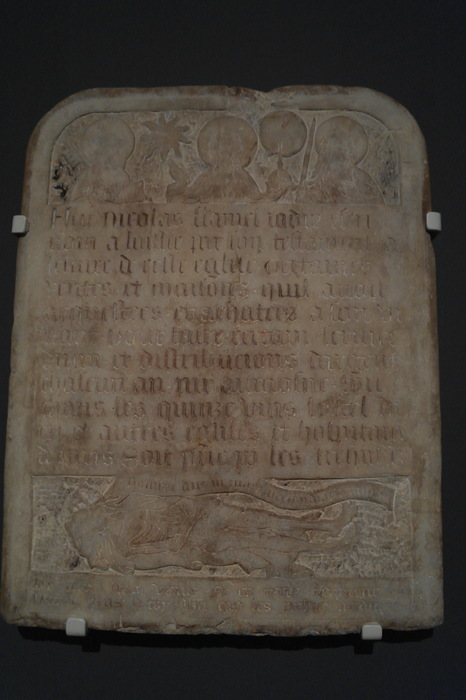 Feu nicolas flamel iadis escri
vain a laissie par son testament a
leuvre de ceste eglise certaines
rentes et maisons quil avoit
acquestees et achatees a son vi
vant pour faire certain service
divin et distribucions dargent
chascun an par aumosne tou
chans les quinze vins lostel di
eu et autres eglises et hospitaux
a paris Soit prie po les trespass
domine deus in tua
De terre suis venus et en terre retorne